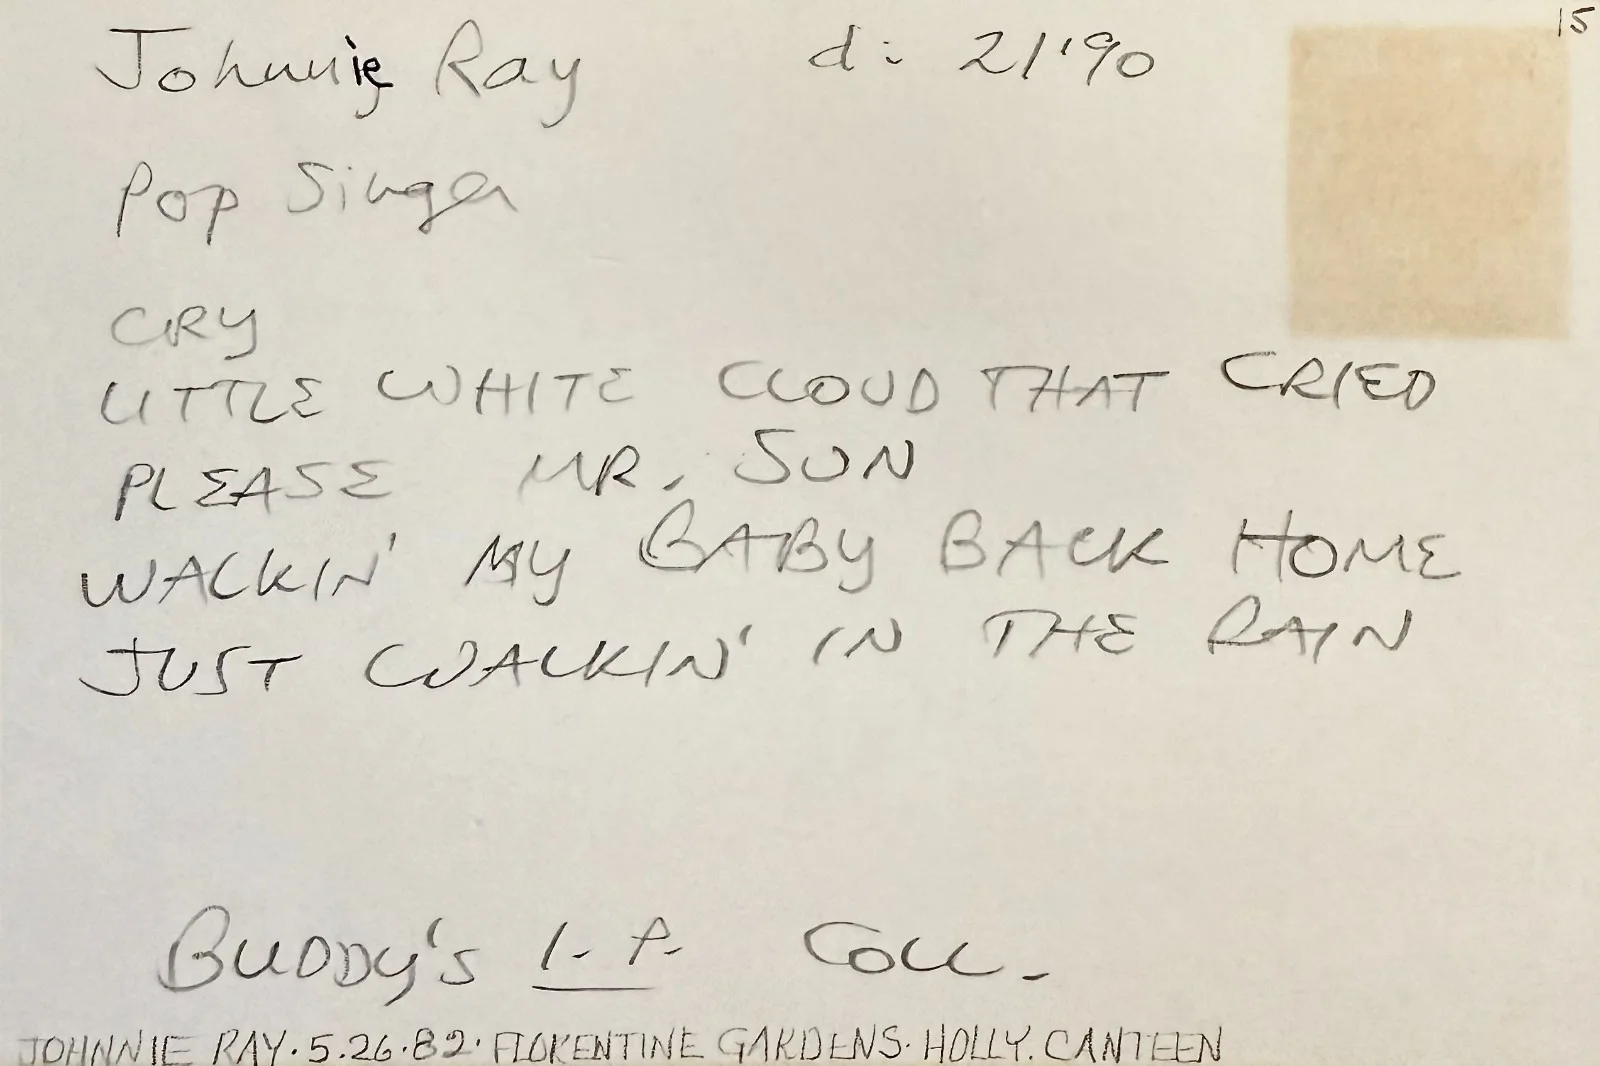 15
Johnnie Ray d: 2/'90
Pop Singer
CRY
LITTLE WHITE CLOUD THAT CRIED
PLEASE MR. SUN
WALKIN' MY BABY BACK HOME
JUST WALKIN' IN THE RAIN
BUDDY'S I.P. COLL.
JOHNNIE RAY. 5.26.82. FLORENTINE GARDENS. HOLLY. CANTEEN